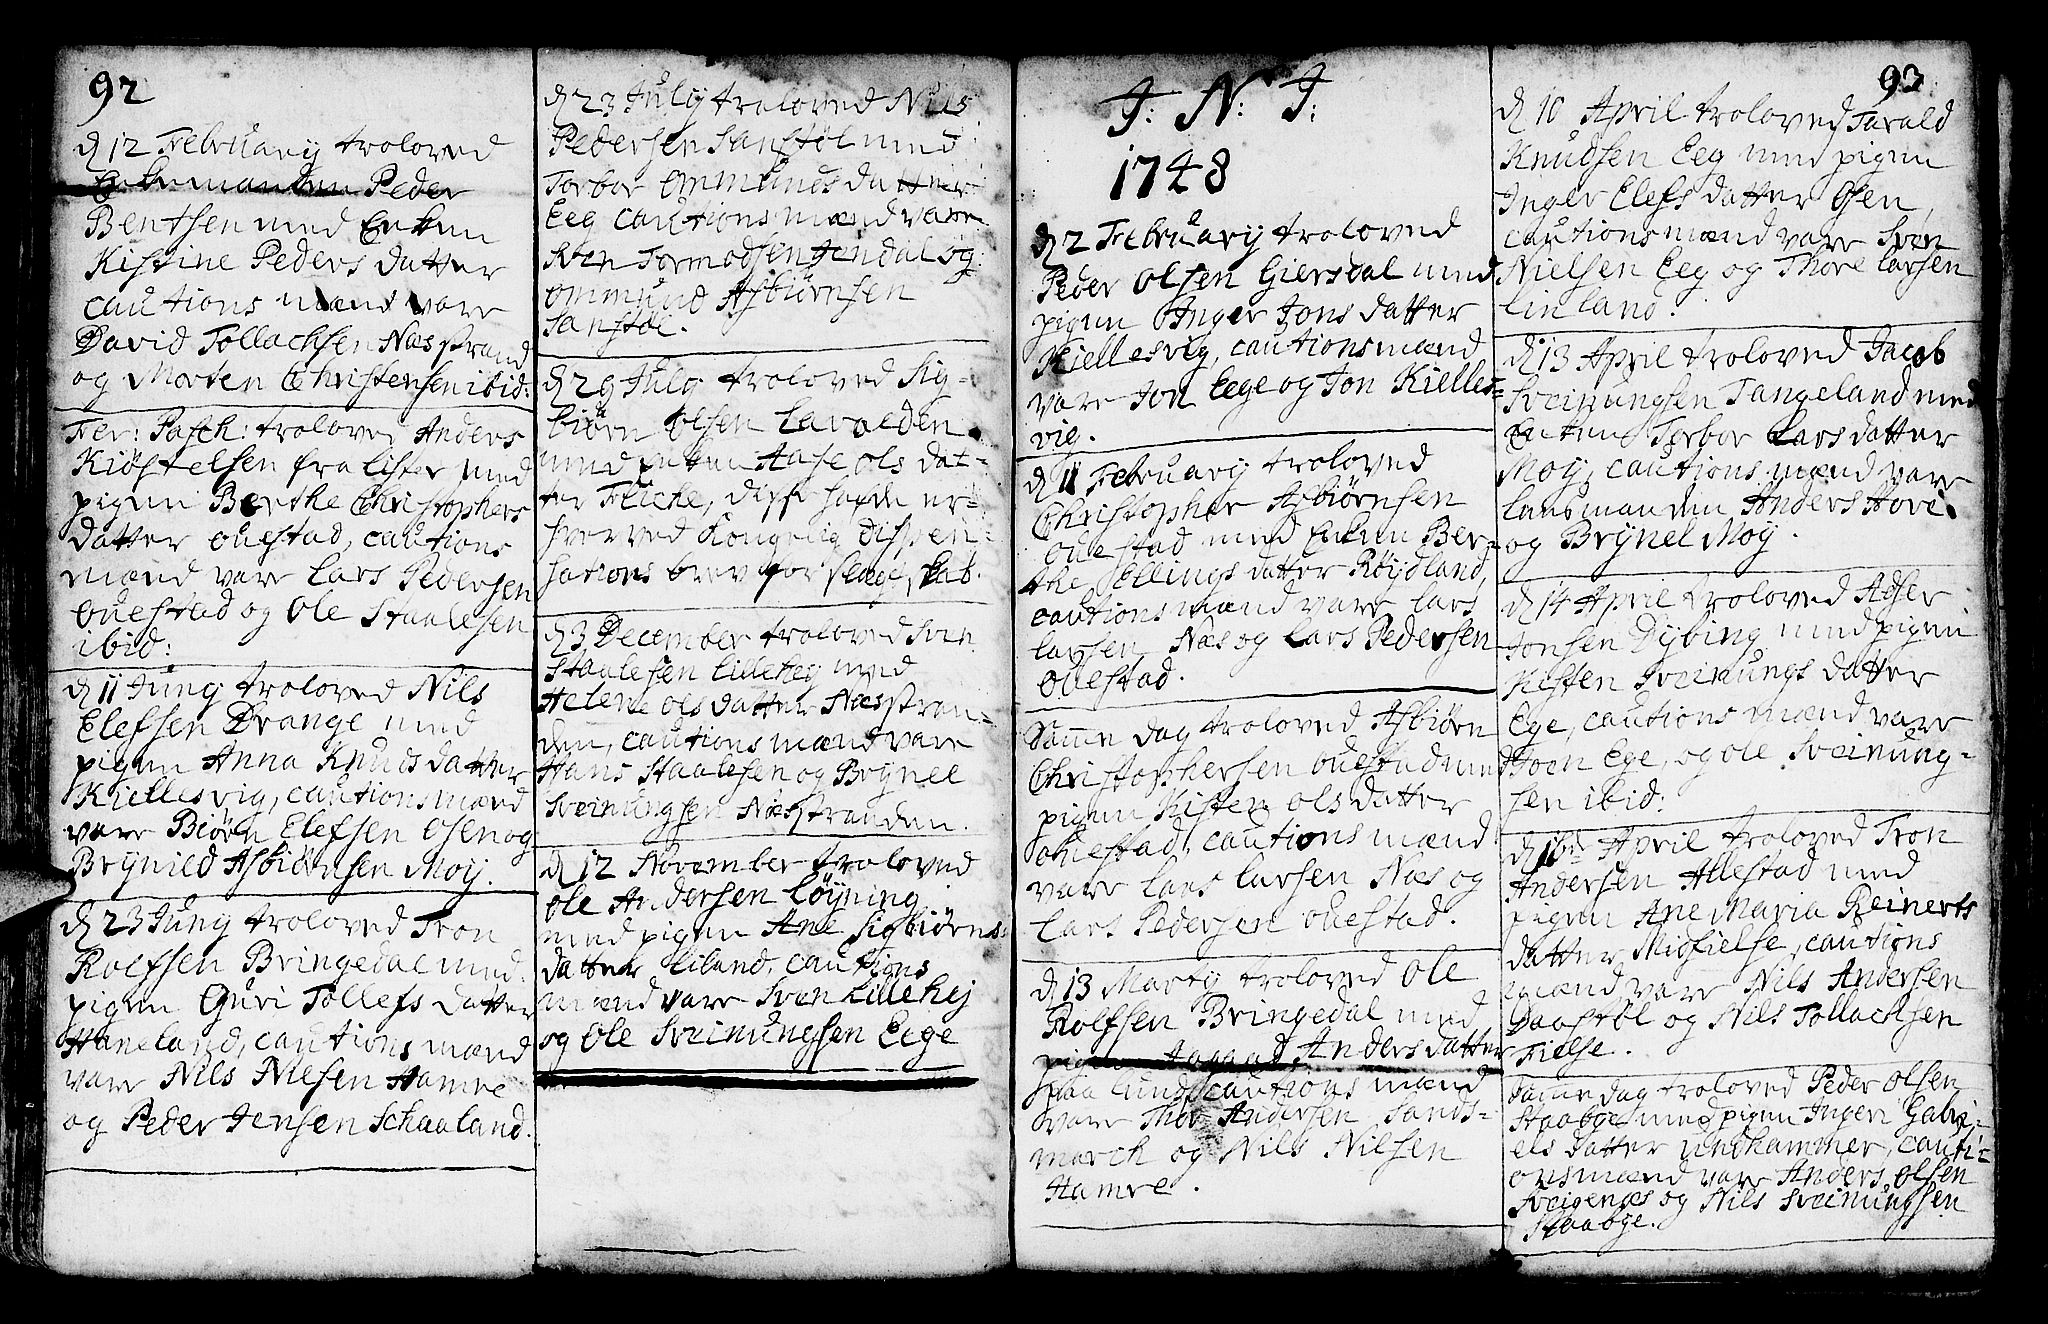 92
d 12 Februarij troloved
Enkemanden Peder
Bentsen med Enken
Kistine Peders datter
cautions mænd vare
David Tollachsen Næsstrand
og Morten Christensen ibid:
Fer: Pasch: troloved Anders
Kiøstelsen fra Lister med
pigen Berthe Christophers
datter Ouestad, cautions
mænd vare Lars Pedersen
Ouestad og Ole Staalesen
ibid:
d 11 Junij troloved Nils
Elefsen Drange med
pigen Anna Knudsdatter
Kiellesvig, cautionsmænd
vare Biørn Elefsen Osen og
Brynild Asbiørnsen Moij.
d 23 Junij troloved Tron
Rolfsen Bringedal med
pigen Guri Tollefs datter
Haneland, cautions mænd
vare Nils Nilsen Hamre
og Peder Jensen Schaaland.
d 23 Julij troloved Nils
Pedersen Sanstøl med
Torbor Ommunds datter
Eeg cautions mænd vare
Sven Tormodsen Jendal og
Ommund Asbiørnsen
Sanstøl.
d 29 Julij troloved Sig-
biørn Olsen Lavolden
med Enken Aase Ols dat-
ter Flicke, disse hafde er-
hverved Kongelig Dispen-
sations brev for slægtskab.
d 3 December troloved Sven
Staalesen Lilleheij med
Helene Ols datter Næsstran-
den, cautions mænd vare
Hans Staalesen og Brynel
Sveinungsen Næsstranden.
d 12 November troloved
Ole Andersen Løyning
med pigen Ane Sigbiørns
datter Eiland, cautions
mænd vare Sven Lillehej
og Ole Sveinungsen Eege
J: N: J:
1748
d 2 Februarij troloved
Peder Olsen Giersdal med
pigen Inger Jons datter
Kiellesvig, cautionsmænd
vare Jon Eege og Jon Kielles-
vig.
d 11 Februarij troloved
Christopher Asbiørnsen
Ouestad med Enken Ber-
the Ellings datter Røijdland,
cautions mænd vare Lars
Larsen Næs og Lars Pedersen
Ouestad.
Samme dag troloved Asbiørn
Christophersen Ouestad med
pigen Kisten Ols datter
Ouestad, cautions mænd
vare Lars Larsen Næs og
Lars Pedersen Ouestad.
d 13 Martij troloved Ole
Rolfsen Bringedal med
pigen Aagaad Anders datter
paa Lund, cautions mænd
vare Thor Andersen Sands-
march og Nils Nilsen
Hamre.
93
d 10 April troloved Tarald
Knudsen Eeg med pigen
Inger Elefs datter Osen,
cautions mænd vare Sven
Nielsen Eeg og Thore Larsen
Linland.
d 13 April troloved Jacob
Sveinungsen Tangeland med
Enken Torbor Lars datter
Moij, cautions mænd vare
Lansmanden Anders Hove
og Brynel Moij.
d 14 April troloved Asser
Jonsen Dybing med pigen
Kisten Sveinungs datter
Ege, cautions mænd vare
Joen Ege, og Ole Sveinung-
sen ibid:
d 16 April troloved Tron
Andersen Allestad med
pigen Ane Maria Reinerts
datter Midfielse, cautions
mænd vare Nils Andersen
Daastøl og Nils Tollachsen
Fielse.
Samme dag troloved Peder Olsen
Staabøe med pigen Inger Gabri-
els datter Undhammer, cauti-
ons mænd vare Anders Olsen
Sveigenæs og Nils Sveinungsen
Staabøe.